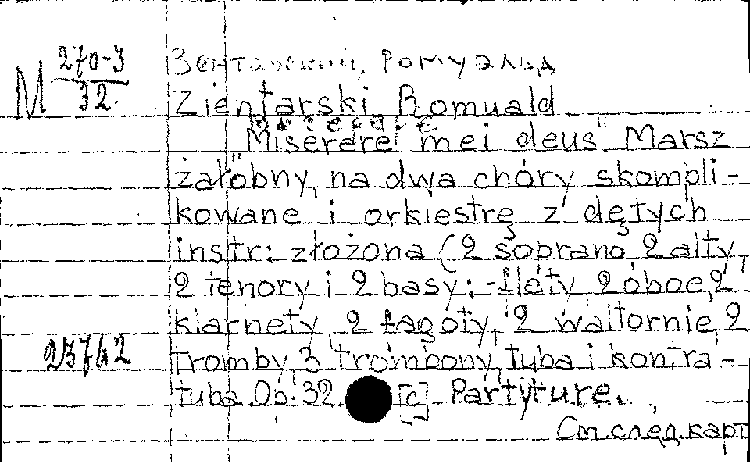 М 270-3/32.
Зентарский, Ромуальд
Zientarski Romuald
Miserere mei deus Marsz
żałobny, na dwa chóry skompli-
kowane i orkiestrę z dętych
instr: złożona (2 soprano, 2 alty,
2 tenory i 2 basy; flety 2 oboe, 2
klarnety, 2 fagoty, 2 waltornie, 2
23762 tromby, 3 trombony, tuba i kontra-
tuba Op. 32. [c] Partyture.
См след. карт